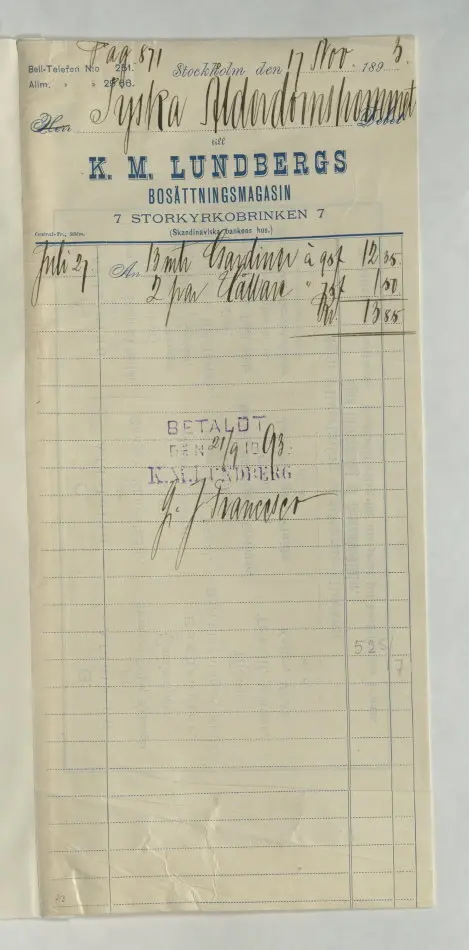 Pag 871
Bell-Telefon N:o 251.
Allm. " " 2966.
Stockholm den 17 Nov. 1893.
Herr Tyska Ålderdomshemmet Debet
till
K. M. LUNDBERGS
BOSÄTTNINGSMAGASIN
7 STORKYRKOBRINKEN 7
(Skandinaviska bankens hus.)
Central-Tr., Sthlm.
Juli 27 An 13 mtr Gardiner à 95 f 12 35
2 par Hållare " 75 f 1 50
Kr. 13 85
BETALDT
DEN 21/9 1893.
K.M.LUNDBERG
J Francesco
525
7